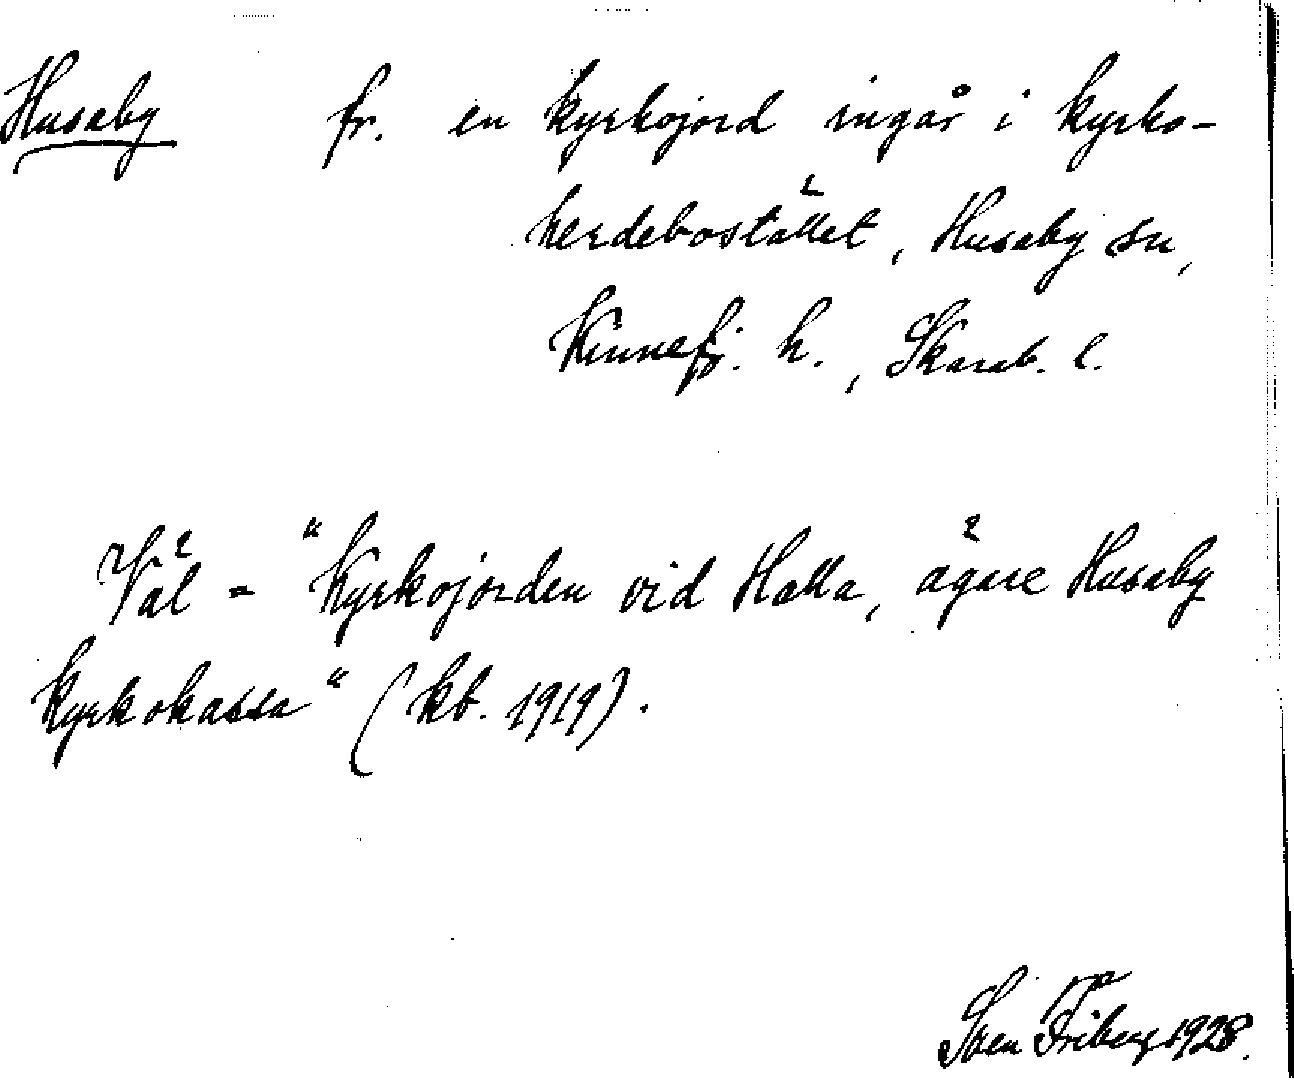 Husaby fr. en kyrkojord ingår i kyrko-
herdebostället, Husaby sn,
Kinnefj. h., Skarab. l.
Väl = "Kyrkojorden vid Halla, ägare Husaby
kyrkokassa" (kb. 1919).
Sven Friberg 1928.